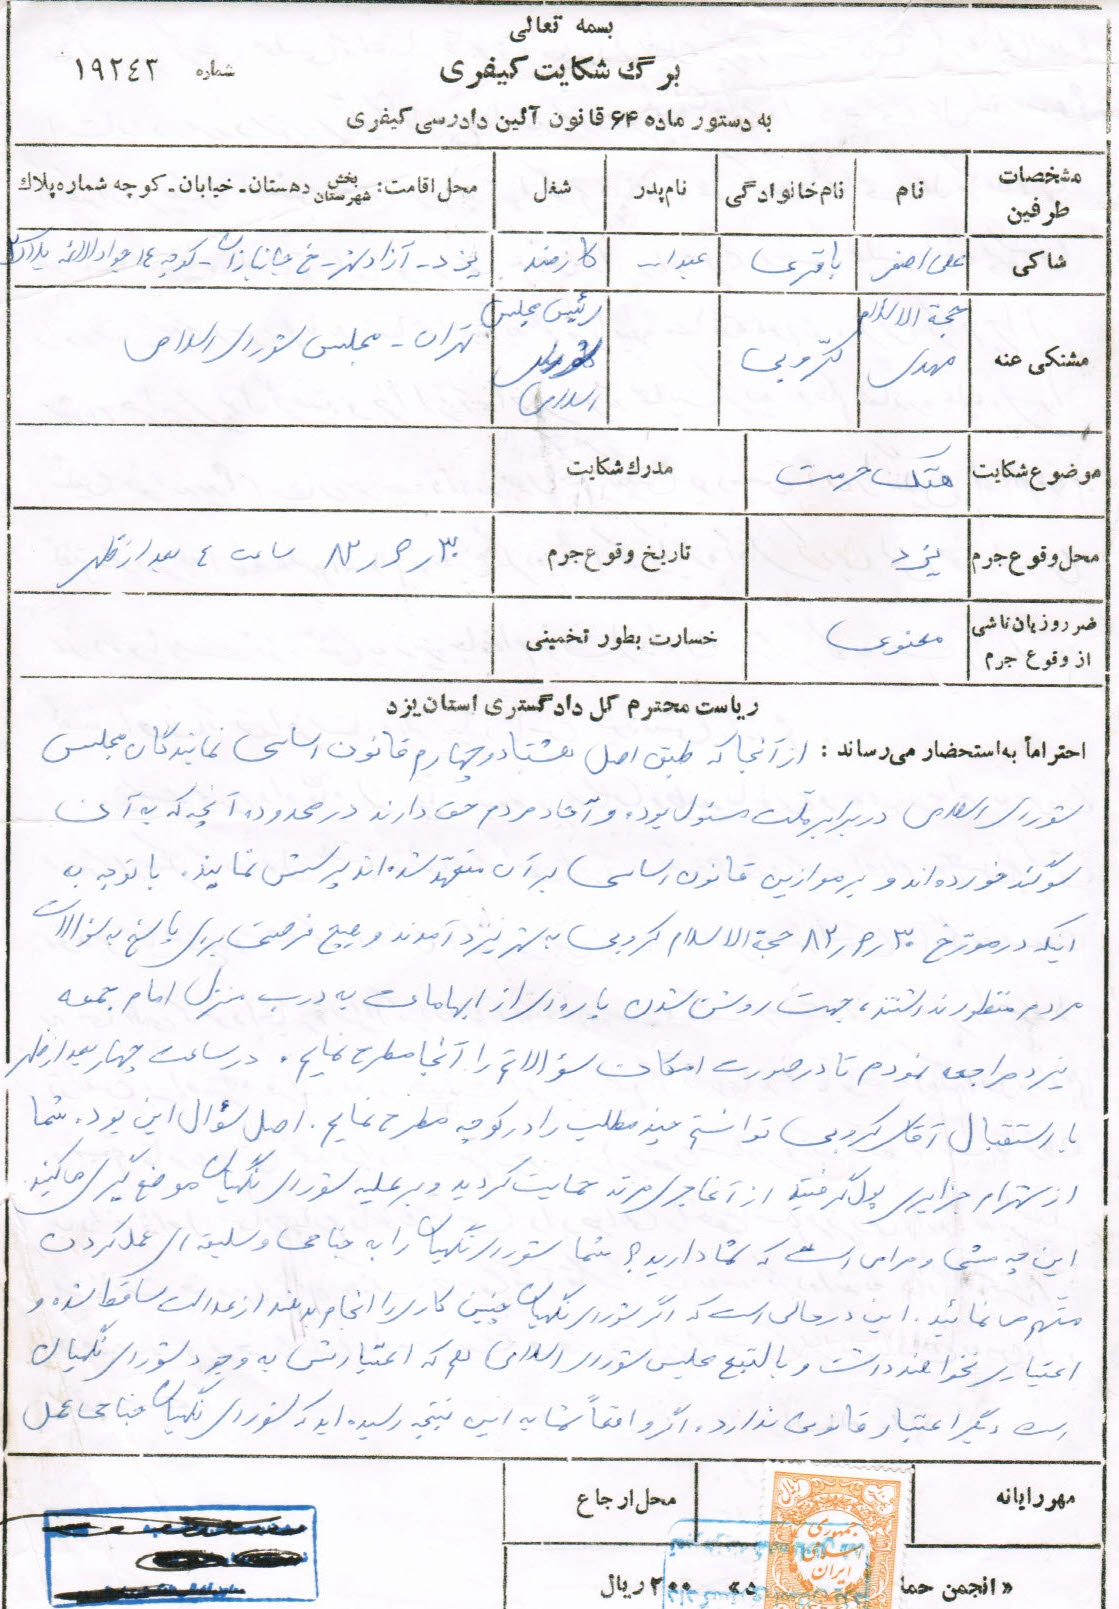 بسمه تعالی
برگ شکایت کیفری
شماره ۱۹۲۴۳
به دستور ماده ۶۴ قانون آئین دادرسی کیفری
مشخصات طرفین نام نام خانوادگی نام پدر شغل محل اقامت: بخش شهرستان دهستان ـ خیابان ـ کوچه شماره پلاک
شاکی علی اصغر باقری عبداله کارمند یزد ـ آزادشهر ـ خ جانبازان ـ کوچه ۱۴ جوادالائمه پلاک
مشتکی عنه حجة الاسلام مهدی کرّوبی رئیس مجلس شورای اسلامی تهران ـ مجلس شورای اسلامی
موضوع شکایت هتک حرمت مدرک شکایت
محل وقوع جرم یزد تاریخ وقوع جرم ۸۲ ساعت ۴ بعد از ظهر
ضرر و زیان ناشی از وقوع جرم معنوی خسارت بطور تخمینی
ریاست محترم کل دادگستری استان یزد
احتراماً به استحضار می‌رساند: از آنجا که طبق اصل هشتاد و چهارم قانون اساسی نمایندگان مجلس
شورای اسلامی در برابر ملّت مسئول بوده و آحاد مردم حق دارند در محدوده آنچه که به آن
سوگند خورده‌اند و بر موازین قانون اساسی بر آن متعهّد شده‌اند پرسش نمایند. با توجه به
اینکه در مورّخ ۸۲ حجة الاسلام کروبی به شهر یزد آمدند و هیچ فرصتی برای پاسخ به سؤالات
مردم منظور نداشتند، جهت روشن شدن پاره‌ای از ابهامات به درب منزل امام جمعه
یزد مراجعه نمودم تا در صورت امکان سؤالاتم را آنجا مطرح نمایم. در ساعت چهار بعد از ظهر
با استقبال آقای کروبی توانستم چند مطلب را در کوچه مطرح نمایم. اصل سؤال این بود. شما
از شهرام جزایری پول گرفتید از آغاجری مرتد حمایت کردید و بر علیه شورای نگهبان موضع گیری می‌کنید.
این چه مشی و مرامی است که شما دارید؟ شما شورای نگهبان را به جناحی و سلیقه‌ای عمل کردن
متّهم می‌نمائید. این در حالی است که اگر شورای نگهبان چنین کاری را انجام بدهد از عدالت ساقط شده و
اعتباری نخواهد داشت و بالتبع مجلس شورای اسلامی هم که اعتبارش به وجود شورای نگهبان
است دیگر اعتبار قانونی ندارد. اگر واقعاً شما به این نتیجه رسیده‌اید که شورای نگهبان جناحی عمل
مهر رایانه
محل ارجاع
جمهوری اسلامی ایران
« انجمن حما
۲۰۰ ریال